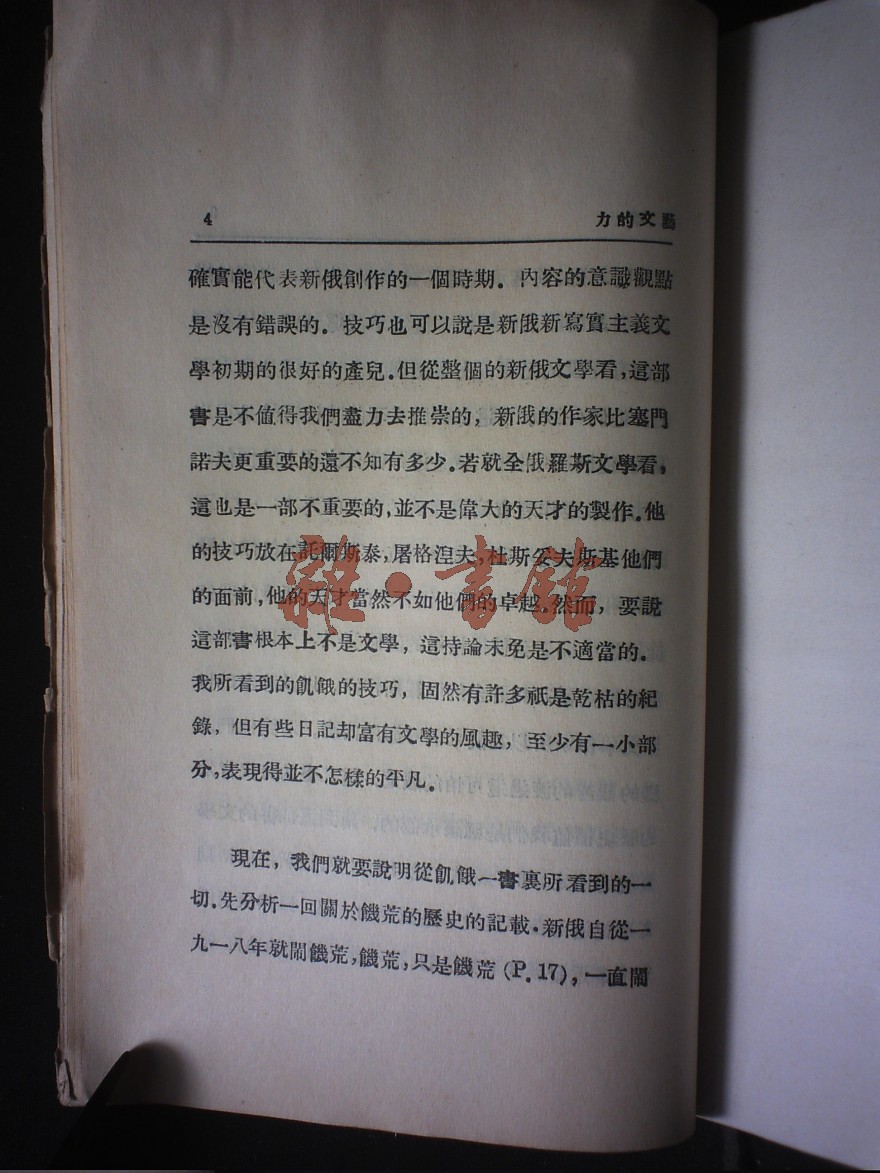 4
力的文藝
確實能代表新俄創作的一個時期。內容的意識觀點
是沒有錯誤的。技巧也可以說是新俄新寫實主義文
學初期的很好的產兒。但從整個的新俄文學看，這部
書是不值得我們盡力去推崇的，新俄的作家比塞門
諾夫更重要的還不知有多少。若就全俄羅斯文學看，
這也是一部不重要的，並不是偉大的天才的製作。他
的技巧放在託爾斯泰，屠格湼夫，杜斯妥夫斯基他們
的面前，他的天才當然不如他們的卓越。然而，要說
這部書根本上不是文學，這持論未免是不適當的。
我所看到的飢餓的技巧，固然有許多祇是乾枯的紀
錄，但有些日記却富有文學的風趣，至少有一小部
分，表現得並不怎樣的平凡。
現在，我們就要說明從飢餓一書裏所看到的一
切。先分析一回關於饑荒的歷史的記載。新俄自從一
九一八年就鬧饑荒，饑荒，只是饑荒（P. 17），一直鬧
雜·書館